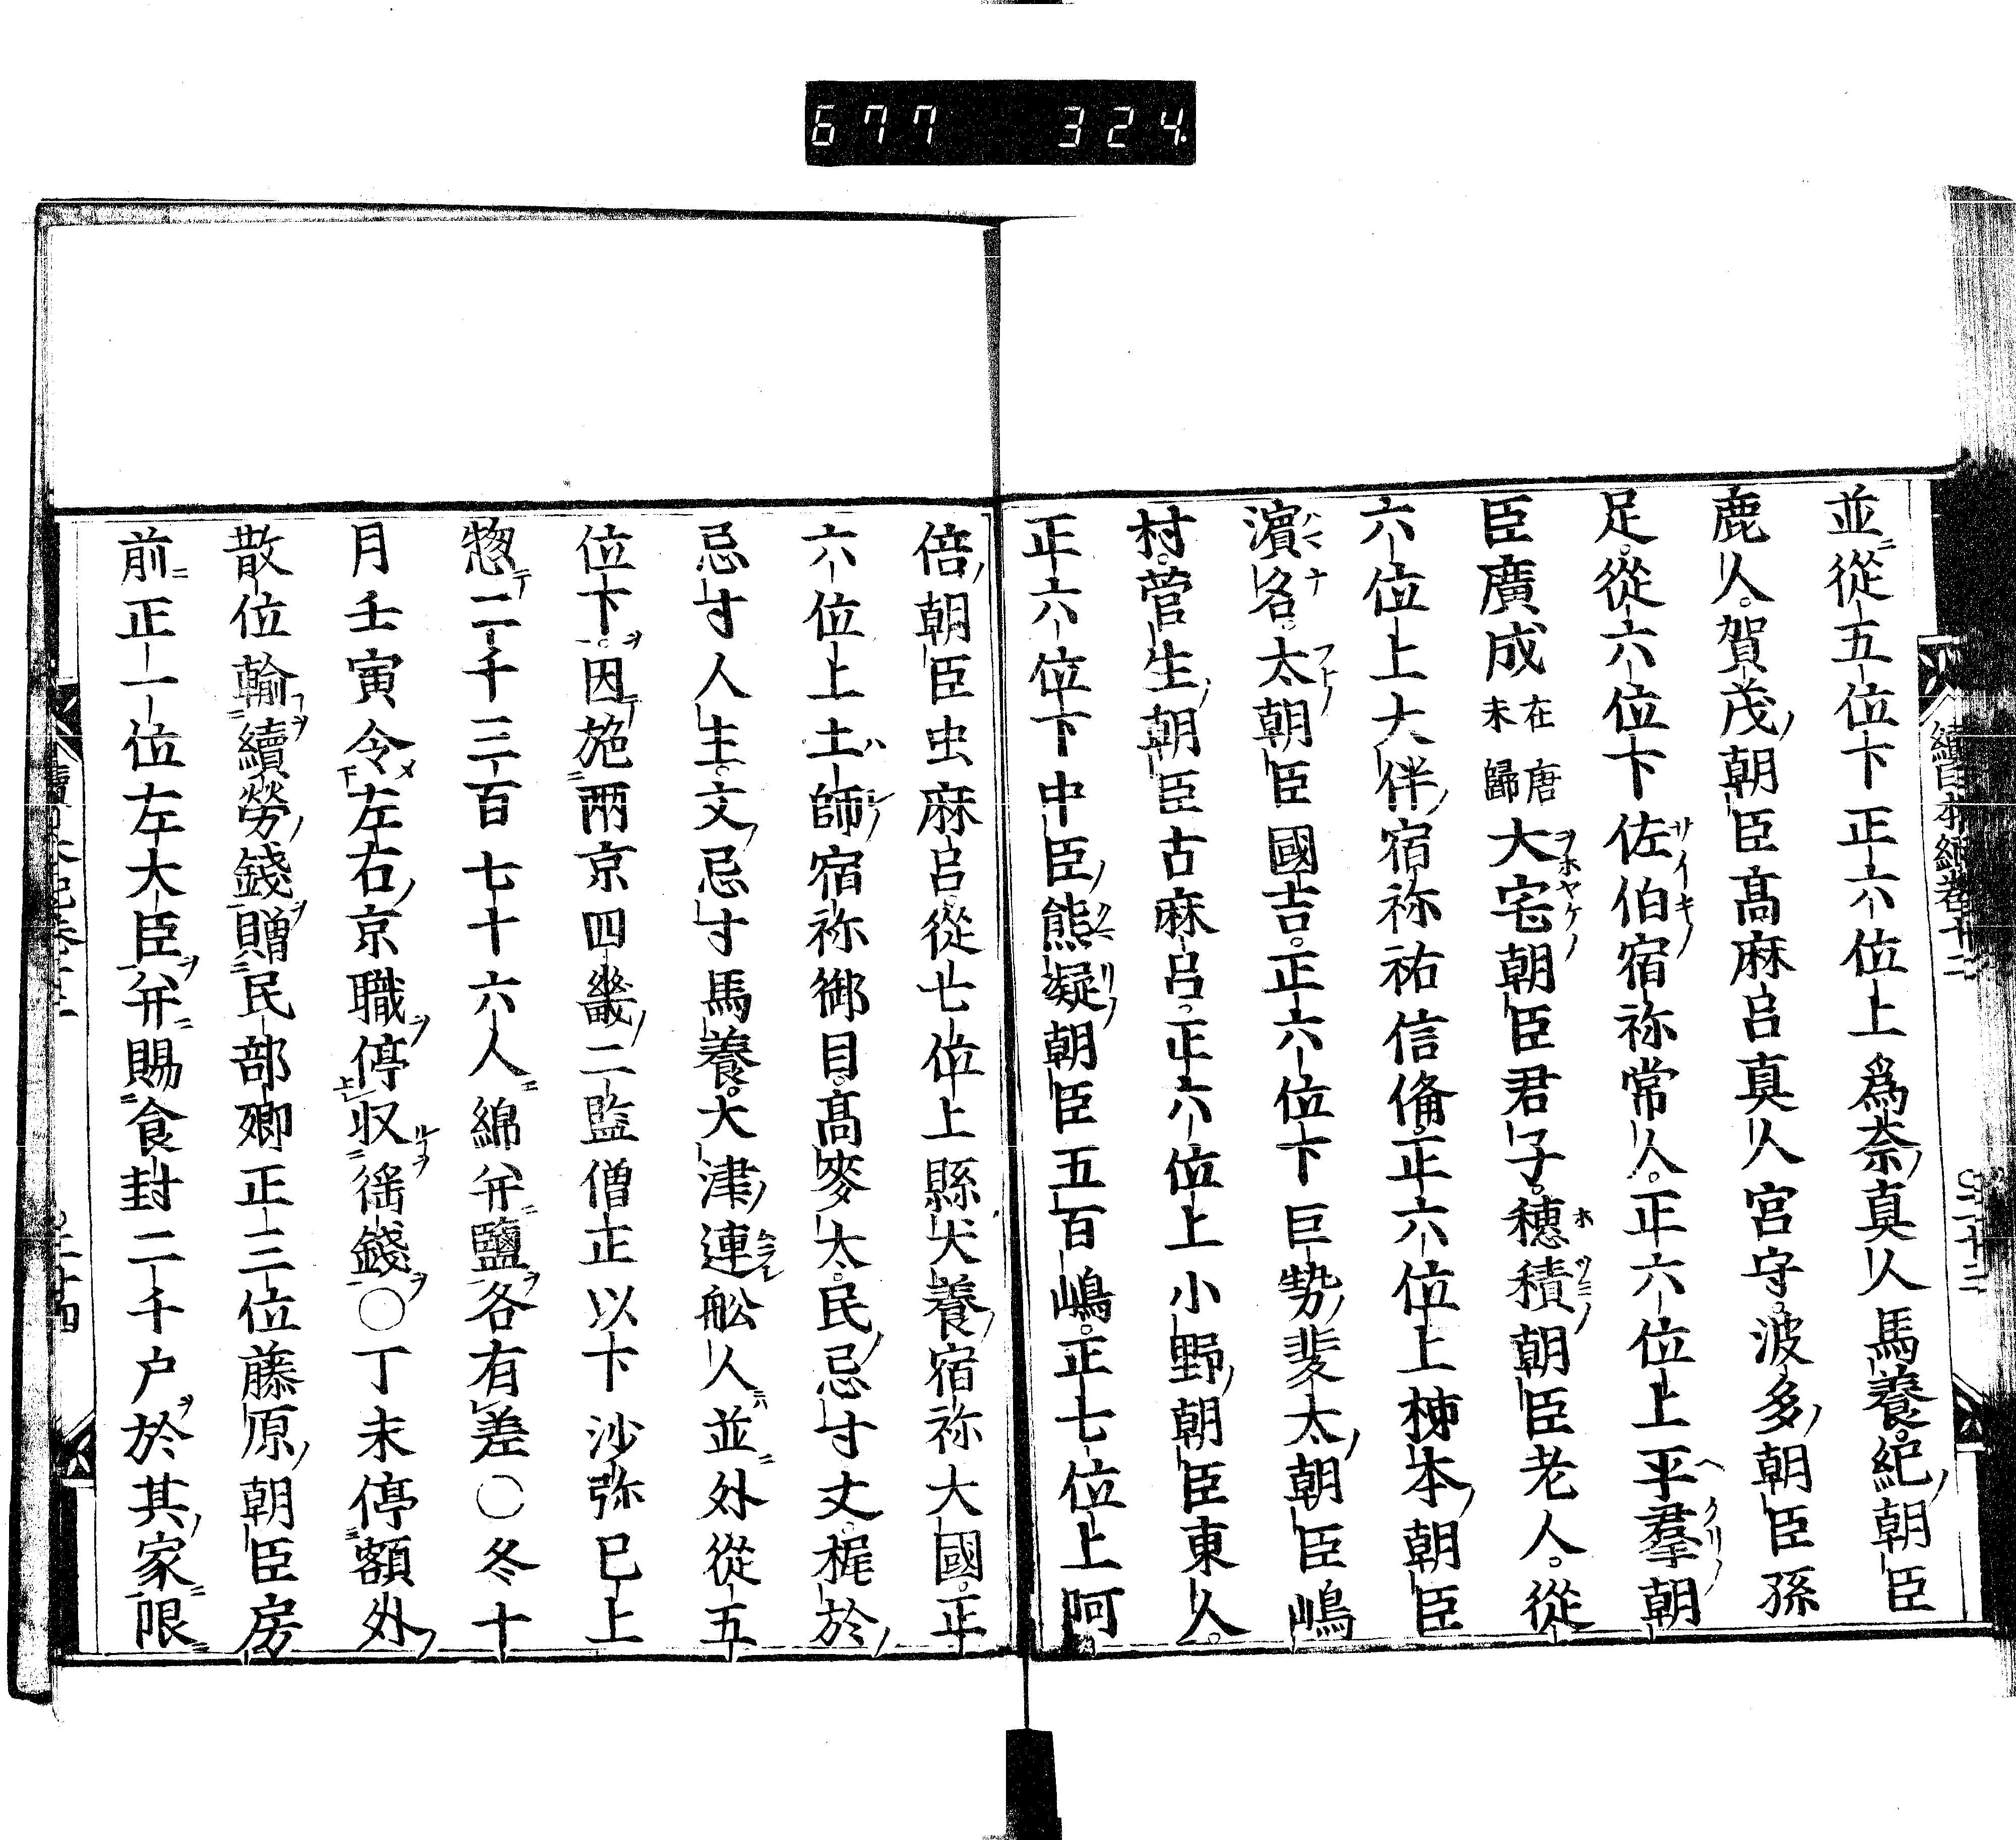 677 324
續日本紀卷十二 〇二十三
並從五位下正六位上爲奈真人馬養。紀朝臣
鹿人。賀茂朝臣高麻呂真人宮守。波多朝臣孫
足。從六位下佐伯宿祢常人。正六位上平羣朝
臣廣成在唐未歸大宅朝臣君子。穗積朝臣老人。從
六位上大伴宿祢祐信備。正六位上柹本朝臣
濵名。太朝臣國吉。正六位下巨勢斐太朝臣嶋
村。菅生朝臣古麻呂。正六位上小野朝臣東人。
正六位下中臣熊凝朝臣五百嶋。正七位上阿
倍朝臣虫麻呂。從七位上縣犬養宿祢大國。正
六位上土師宿祢御目。高麥太。民忌寸丈。梶於
忌寸人主。文忌寸馬養。大津連舩人並外從五
位下。因施兩京四畿二監僧正以下沙弥已上
惣二千三百七十六人綿并鹽各有差〇冬十
月壬寅令左右京職停収徭錢〇丁未停額外
散位輸續勞錢贈民部卿正三位藤原朝臣房
前正一位左大臣并賜食封二千戸於其家限